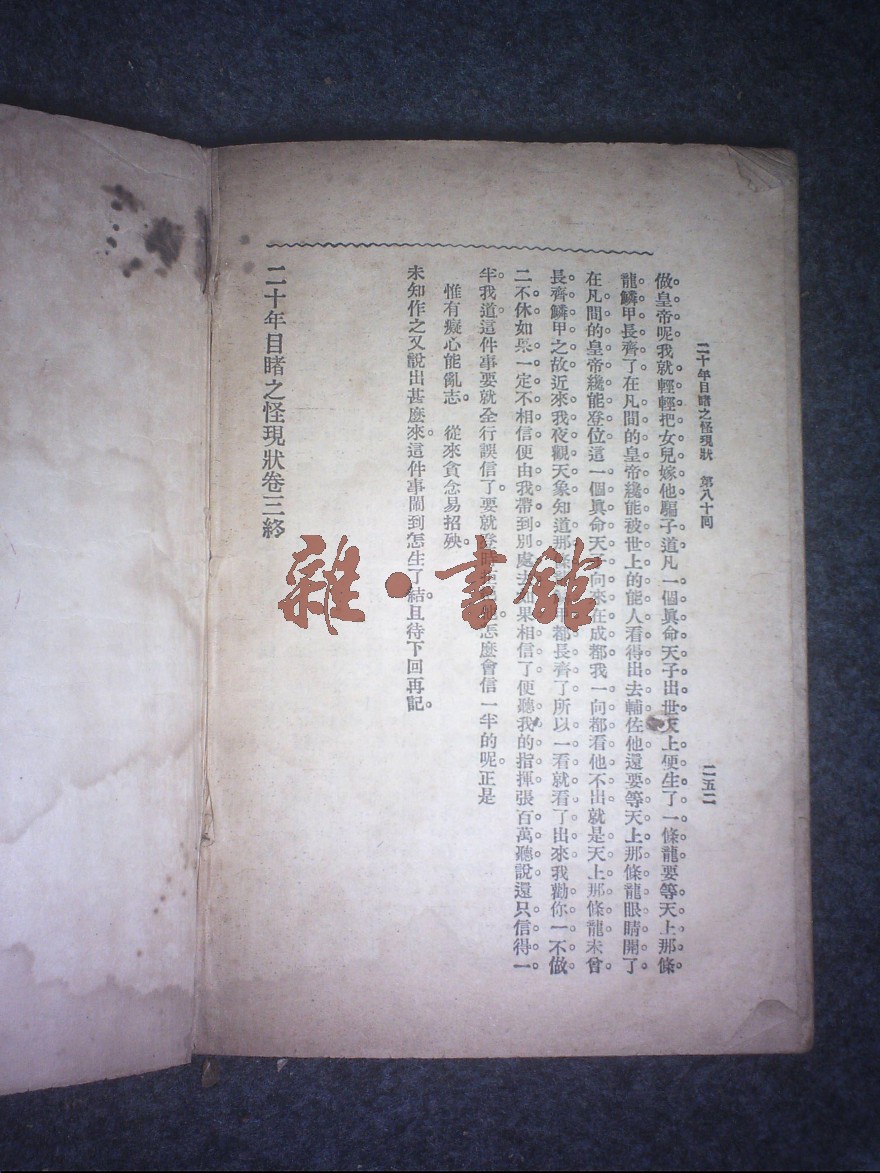 二十年目睹之怪現狀　第八十回
二五二
做皇帝呢我就輕輕把女兒嫁他騙子道凡一個眞命天子出世天上便生了一條龍要等天上那條
龍鱗甲長齊了在凡間的皇帝纔能被世上的能人看得出去輔佐他還要等天上那條龍眼睛開了
在凡間的皇帝纔能登位這一個眞命天子向來在成都我一向都看他不出就是天上那條龍未曾
長齊鱗甲之故近來我夜觀天象知道那條都長齊了所以一看就看了出來我勸你一不做
二不休如果一定不相信便由我帶到別處去如果相信了便聽我的指揮張百萬聽說還只信得一
半我道這件事要就全行誤信了要就登時怎麼會信一半的呢正是
惟有癡心能亂志　從來貪念易招殃
未知作之又說出甚麼來這件事鬧到怎生了結且待下回再記
二十年目睹之怪現狀卷三終
雜·書館